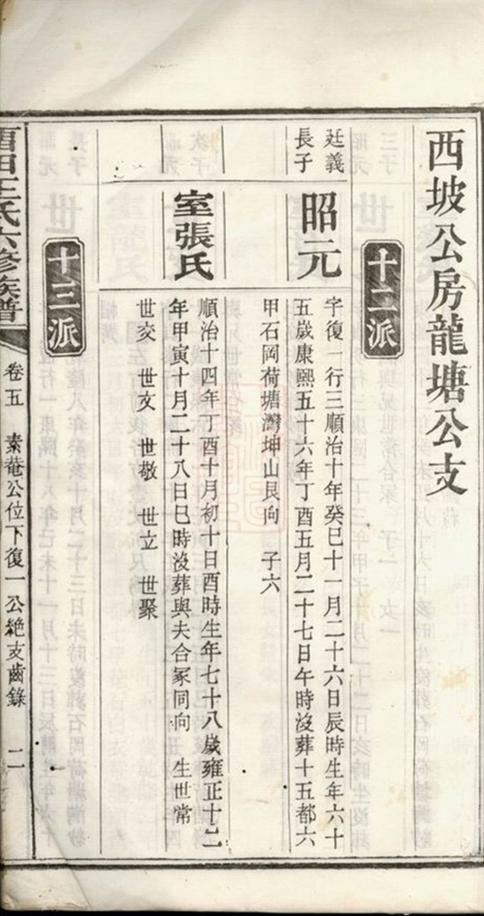 西坡公房龍塘公支
十二派
廷義
長子
昭元
字復一行三順治十年癸巳十一月二十六日辰時生年六十
五歲康熙五十六年丁酉五月二十七日午時沒葬十五都六
甲石岡荷塘灣坤山艮向 子六
室張氏
順治十四年丁酉十月初十日酉時生年七十八歲雍正十二
年甲寅十月二十八日巳時沒葬與夫合冢同向 生世常
世交 世文 世敬 世立 世聚
十三派
田王氏六修族譜
卷五 素菴公位下復一公絕支齒錄 二